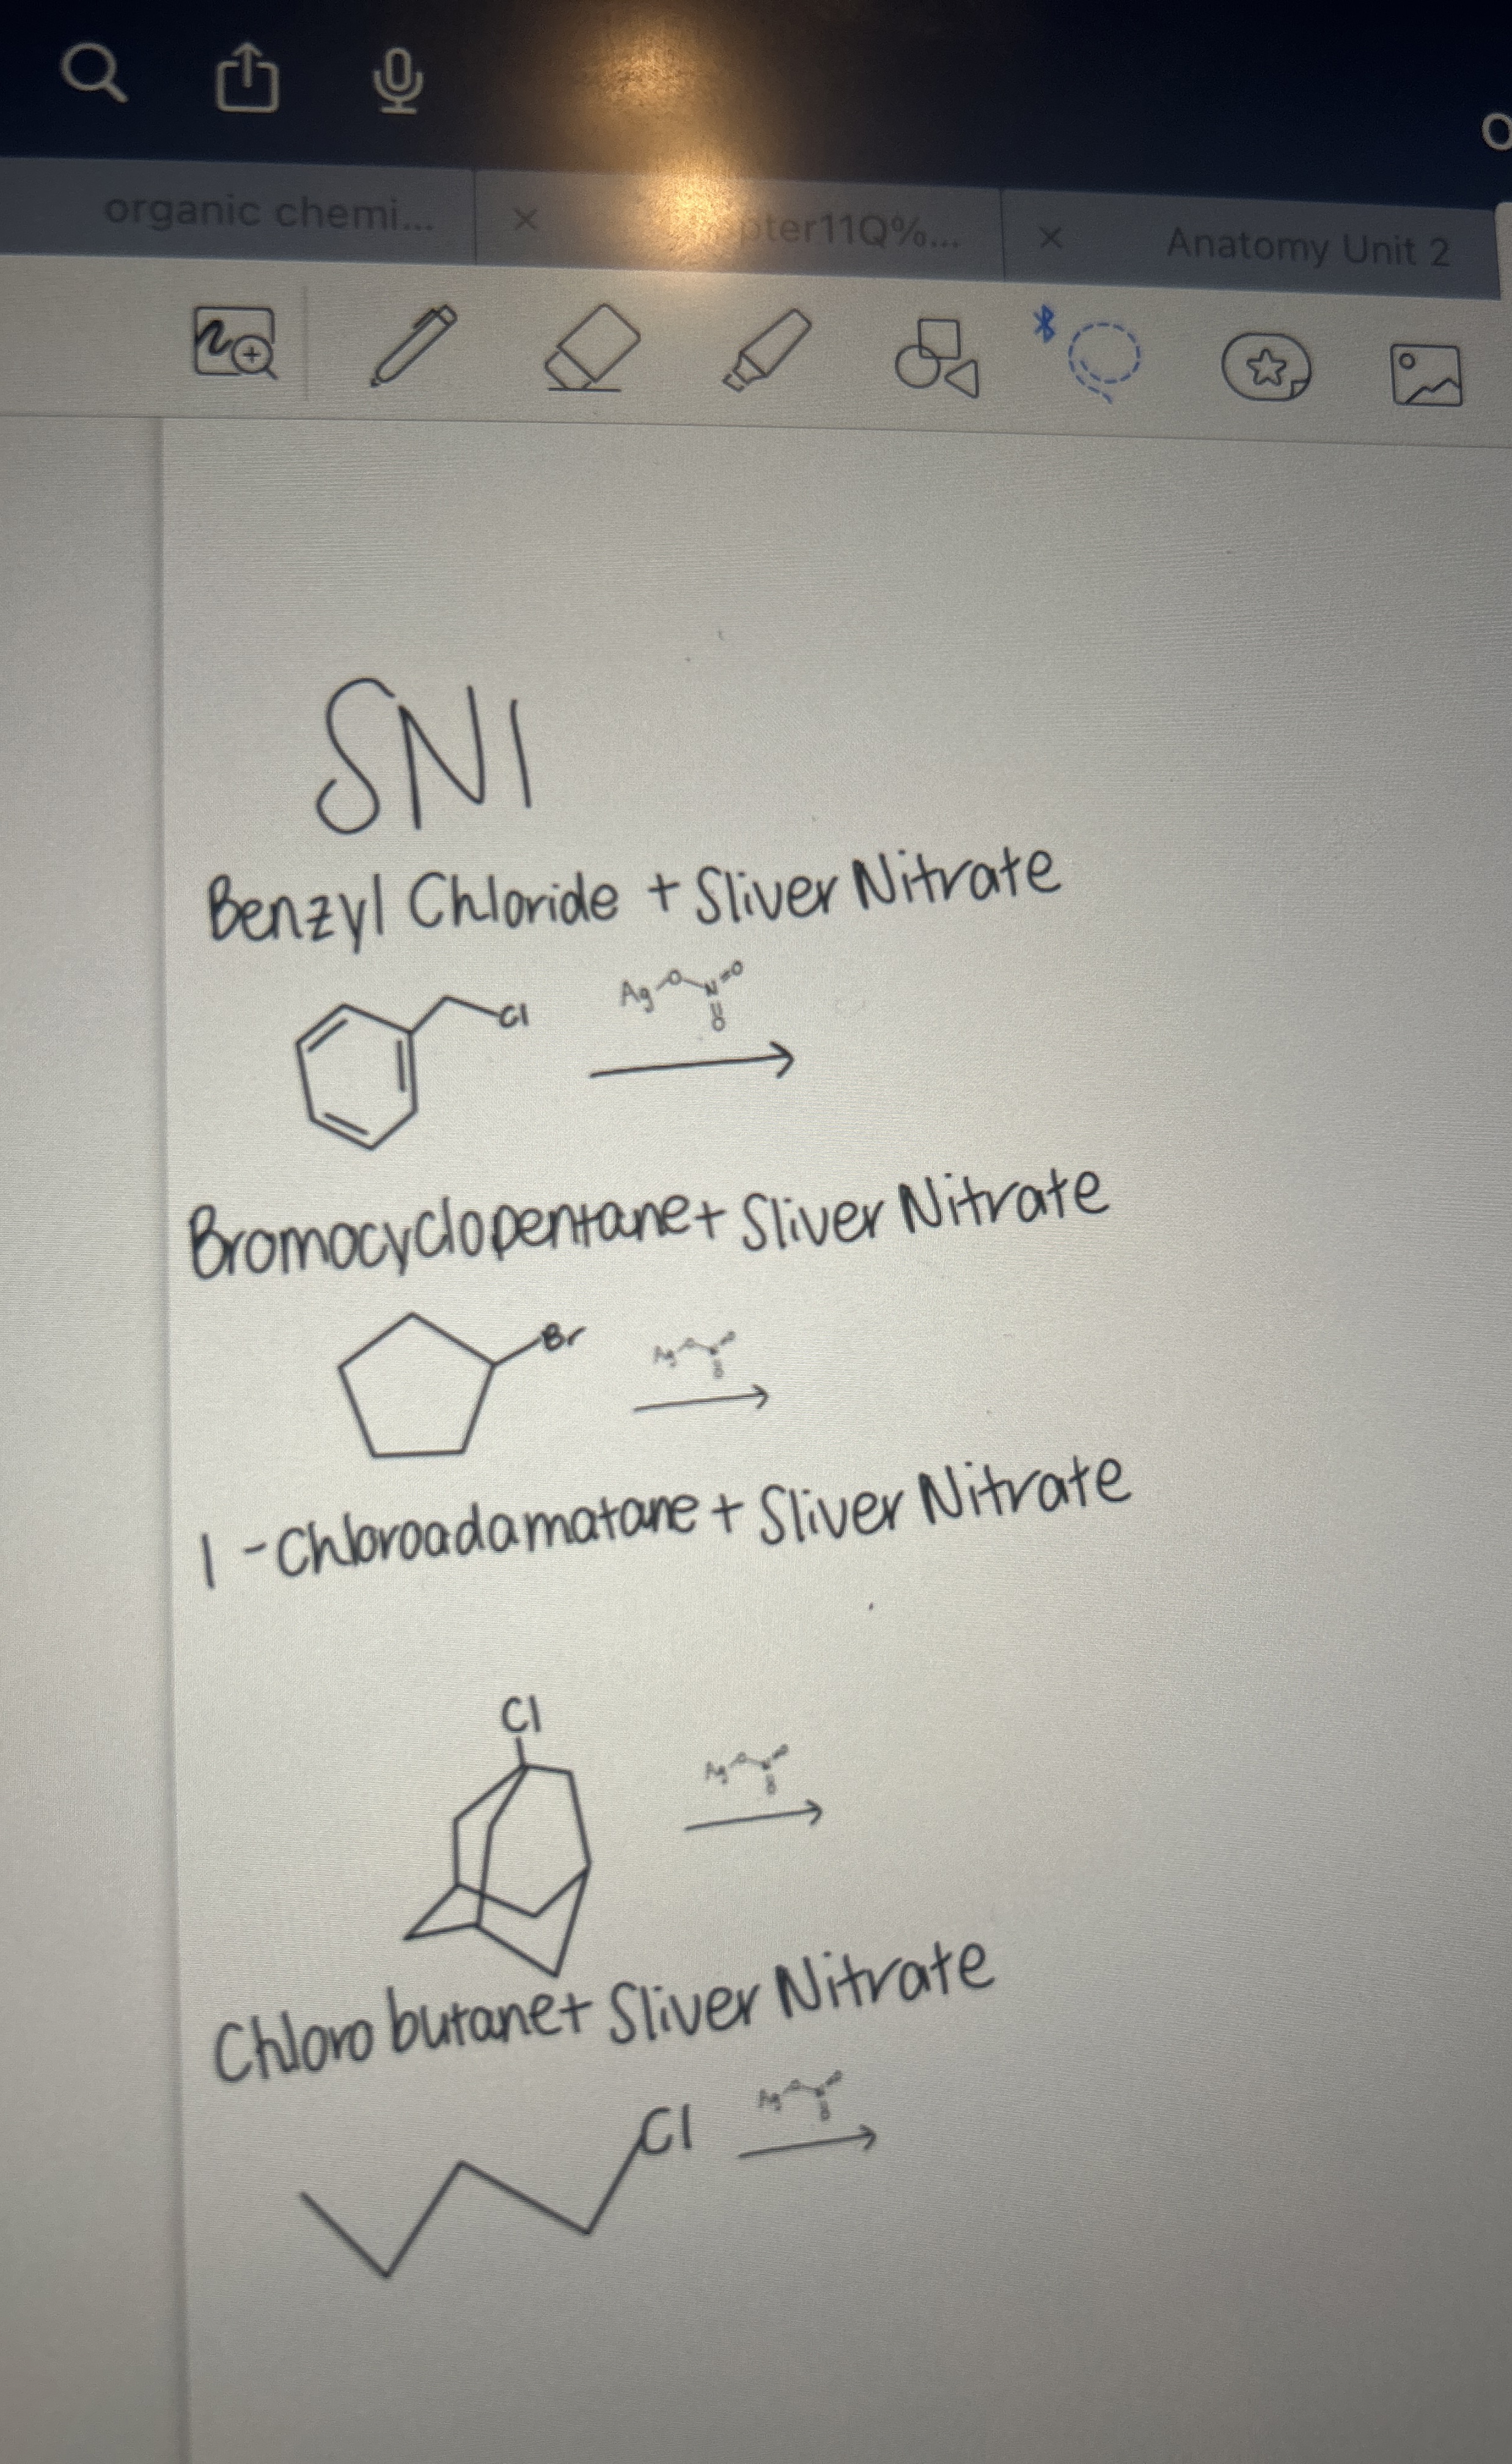 organic chemi...
pter11Q%...
Anatomy Unit 2
SN1
Benzyl Chloride + Sliver Nitrate
Cl
Ag O N O
O
Bromocyclopentane + Sliver Nitrate
Br
Ag
1-Chloroadamatane + Sliver Nitrate
Cl
Ag
Chlorobutane + Sliver Nitrate
Cl
Ag